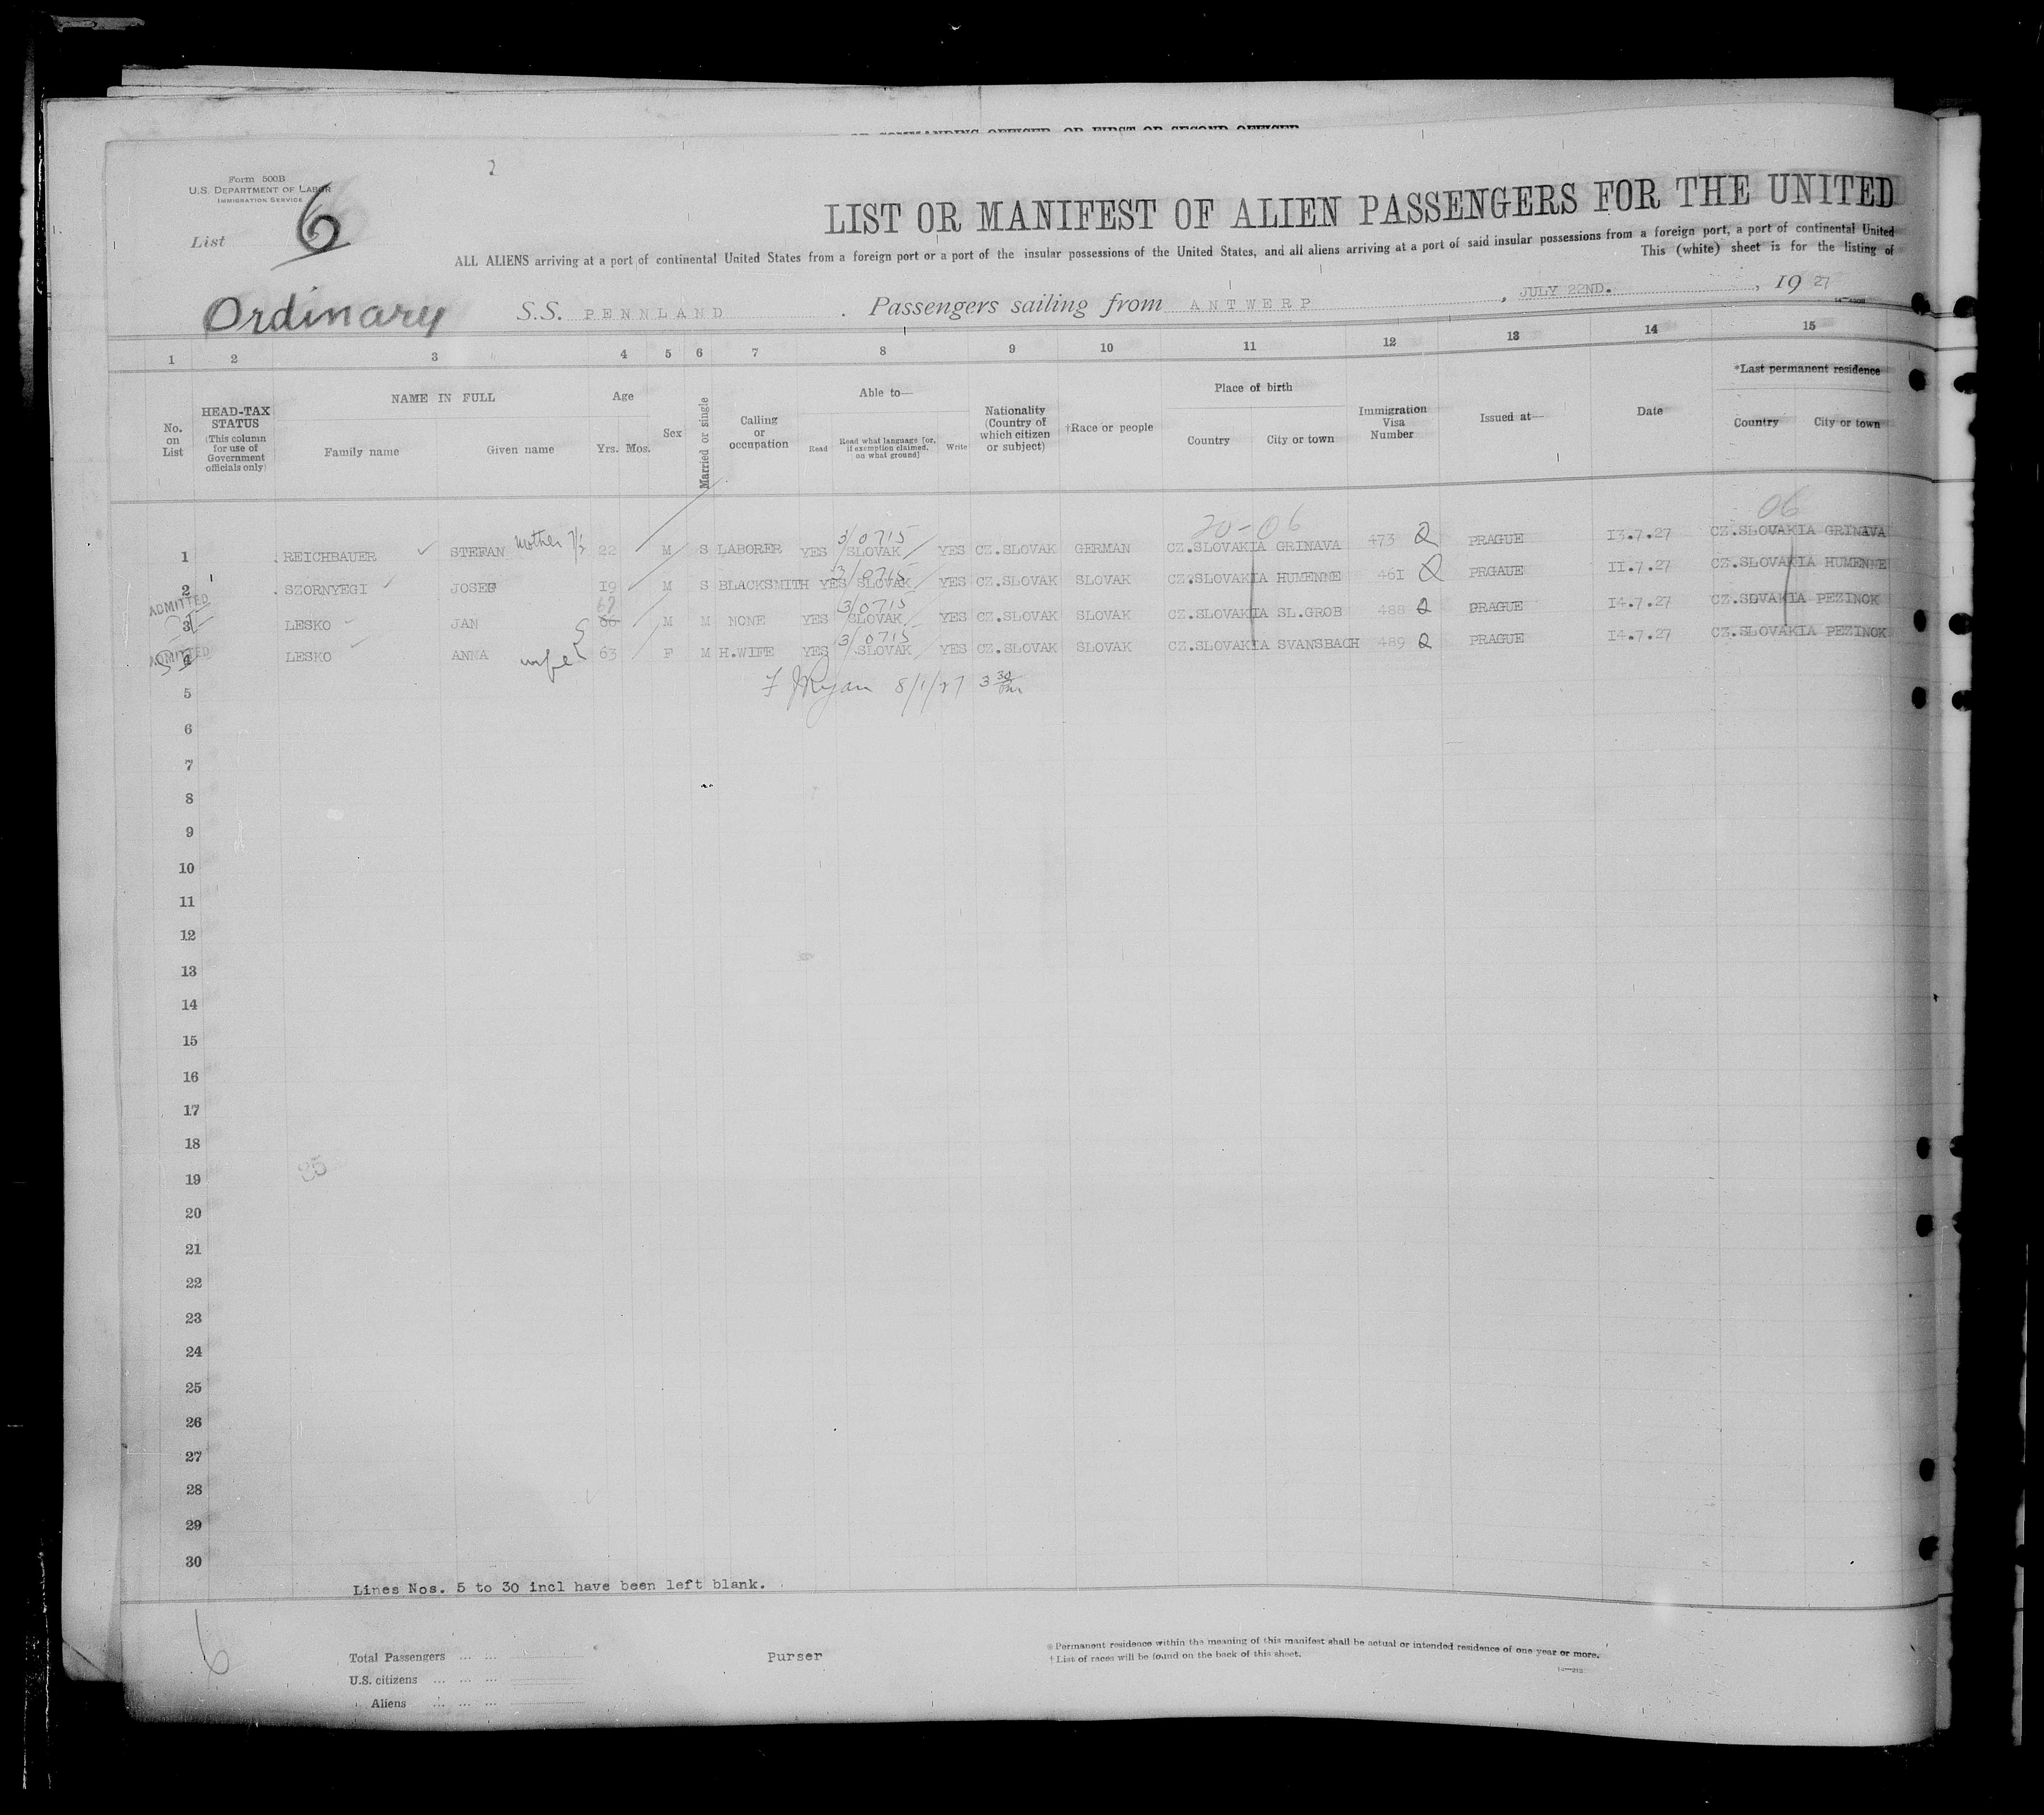 Form 500B
U.S. DEPARTMENT OF LABOR
IMMIGRATION SERVICE
List 6
LIST OR MANIFEST OF ALIEN PASSENGERS FOR THE UNITED
ALL ALIENS arriving at a port of continental United States from a foreign port or a port of the insular possessions of the United States, and all aliens arriving at a port of said insular possessions from a foreign port, a port of continental United
This (white) sheet is for the listing of
Ordinary S.S. PENNLAND. Passengers sailing from ANTWERP, JULY 22ND., 1927
1 2 3 4 5 6 7 8 9 10 11 12 13 14 15
No. on List
HEAD-TAX STATUS (This column for use of Government officials only)
NAME IN FULL
Family name Given name
Age
Yrs. Mos.
Sex
Married or single
Calling or occupation
Able to—
Read Read what language [or, if exemption claimed, on what ground] Write
Nationality (Country of which citizen or subject)
†Race or people
Place of birth
Country City or town
Immigration Visa Number
Issued at—
Date
*Last permanent residence
Country City or town
20-06 06
1 REICHBAUER STEFAN mother 22 M S LABORER YES 3/0715 SLOVAK YES CZ.SLOVAK GERMAN CZ.SLOVAKIA GRINAVA 473 Q PRAGUE 13.7.27 CZ.SLOVAKIA GRINAVA
2 SZORNYEGI JOSEF 19 M S BLACKSMITH YES 3/0715 SLOVAK YES CZ.SLOVAK SLOVAK CZ.SLOVAKIA HUMENNE 461 Q PRGAUE 11.7.27 CZ.SLOVAKIA HUMENNE
ADMITTED
3 LESKO JAN 67 66 M M NONE YES 3/0715 SLOVAK YES CZ.SLOVAK SLOVAK CZ.SLOVAKIA SL.GROB 488 Q PRAGUE 14.7.27 CZ.SDVAKIA PEZINOK
ADMITTED
4 LESKO ANNA wife 63 F M H.WIFE YES 3/0715 SLOVAK YES CZ.SLOVAK SLOVAK CZ.SLOVAKIA SVANSBACH 489 Q PRAGUE 14.7.27 CZ.SLOVAKIA PEZINOK
5 F J Ryan 8/1/27 3 30 Pm
6
7
8
9
10
11
12
13
14
15
16
17
18
19
20
21
22
23
24
25
26
27
28
29
30
Lines Nos. 5 to 30 incl have been left blank.
6
Total Passengers ... ...
U.S. citizens ... ... ...
Aliens ... ... ...
Purser
*Permanent residence within the meaning of this manifest shall be actual or intended residence of one year or more.
†List of races will be found on the back of this sheet.